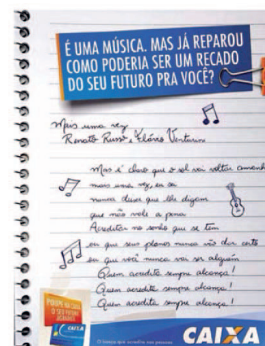 É UMA MÚSICA. MAS JÁ REPAROU
COMO PODERIA SER UM RECADO
DO SEU FUTURO PRA VOCÊ?
Mais uma vez
Renato Russo, Flávio Venturini
Mas é claro que o sol vai voltar amanhã
mais uma vez, eu sei
nunca deixe que lhe digam
que não vale a pena
Acreditar no sonho que se tem
ou que seus planos nunca vão dar certo
ou que você nunca vai ser alguém
Quem acredita sempre alcança!
Quem acredita sempre alcança!
Quem acredita sempre alcança!
POUPE NA CAIXA
O SEU FUTURO
AGRADECE
CAIXA
O banco que acredita nas pessoas
CAIXA